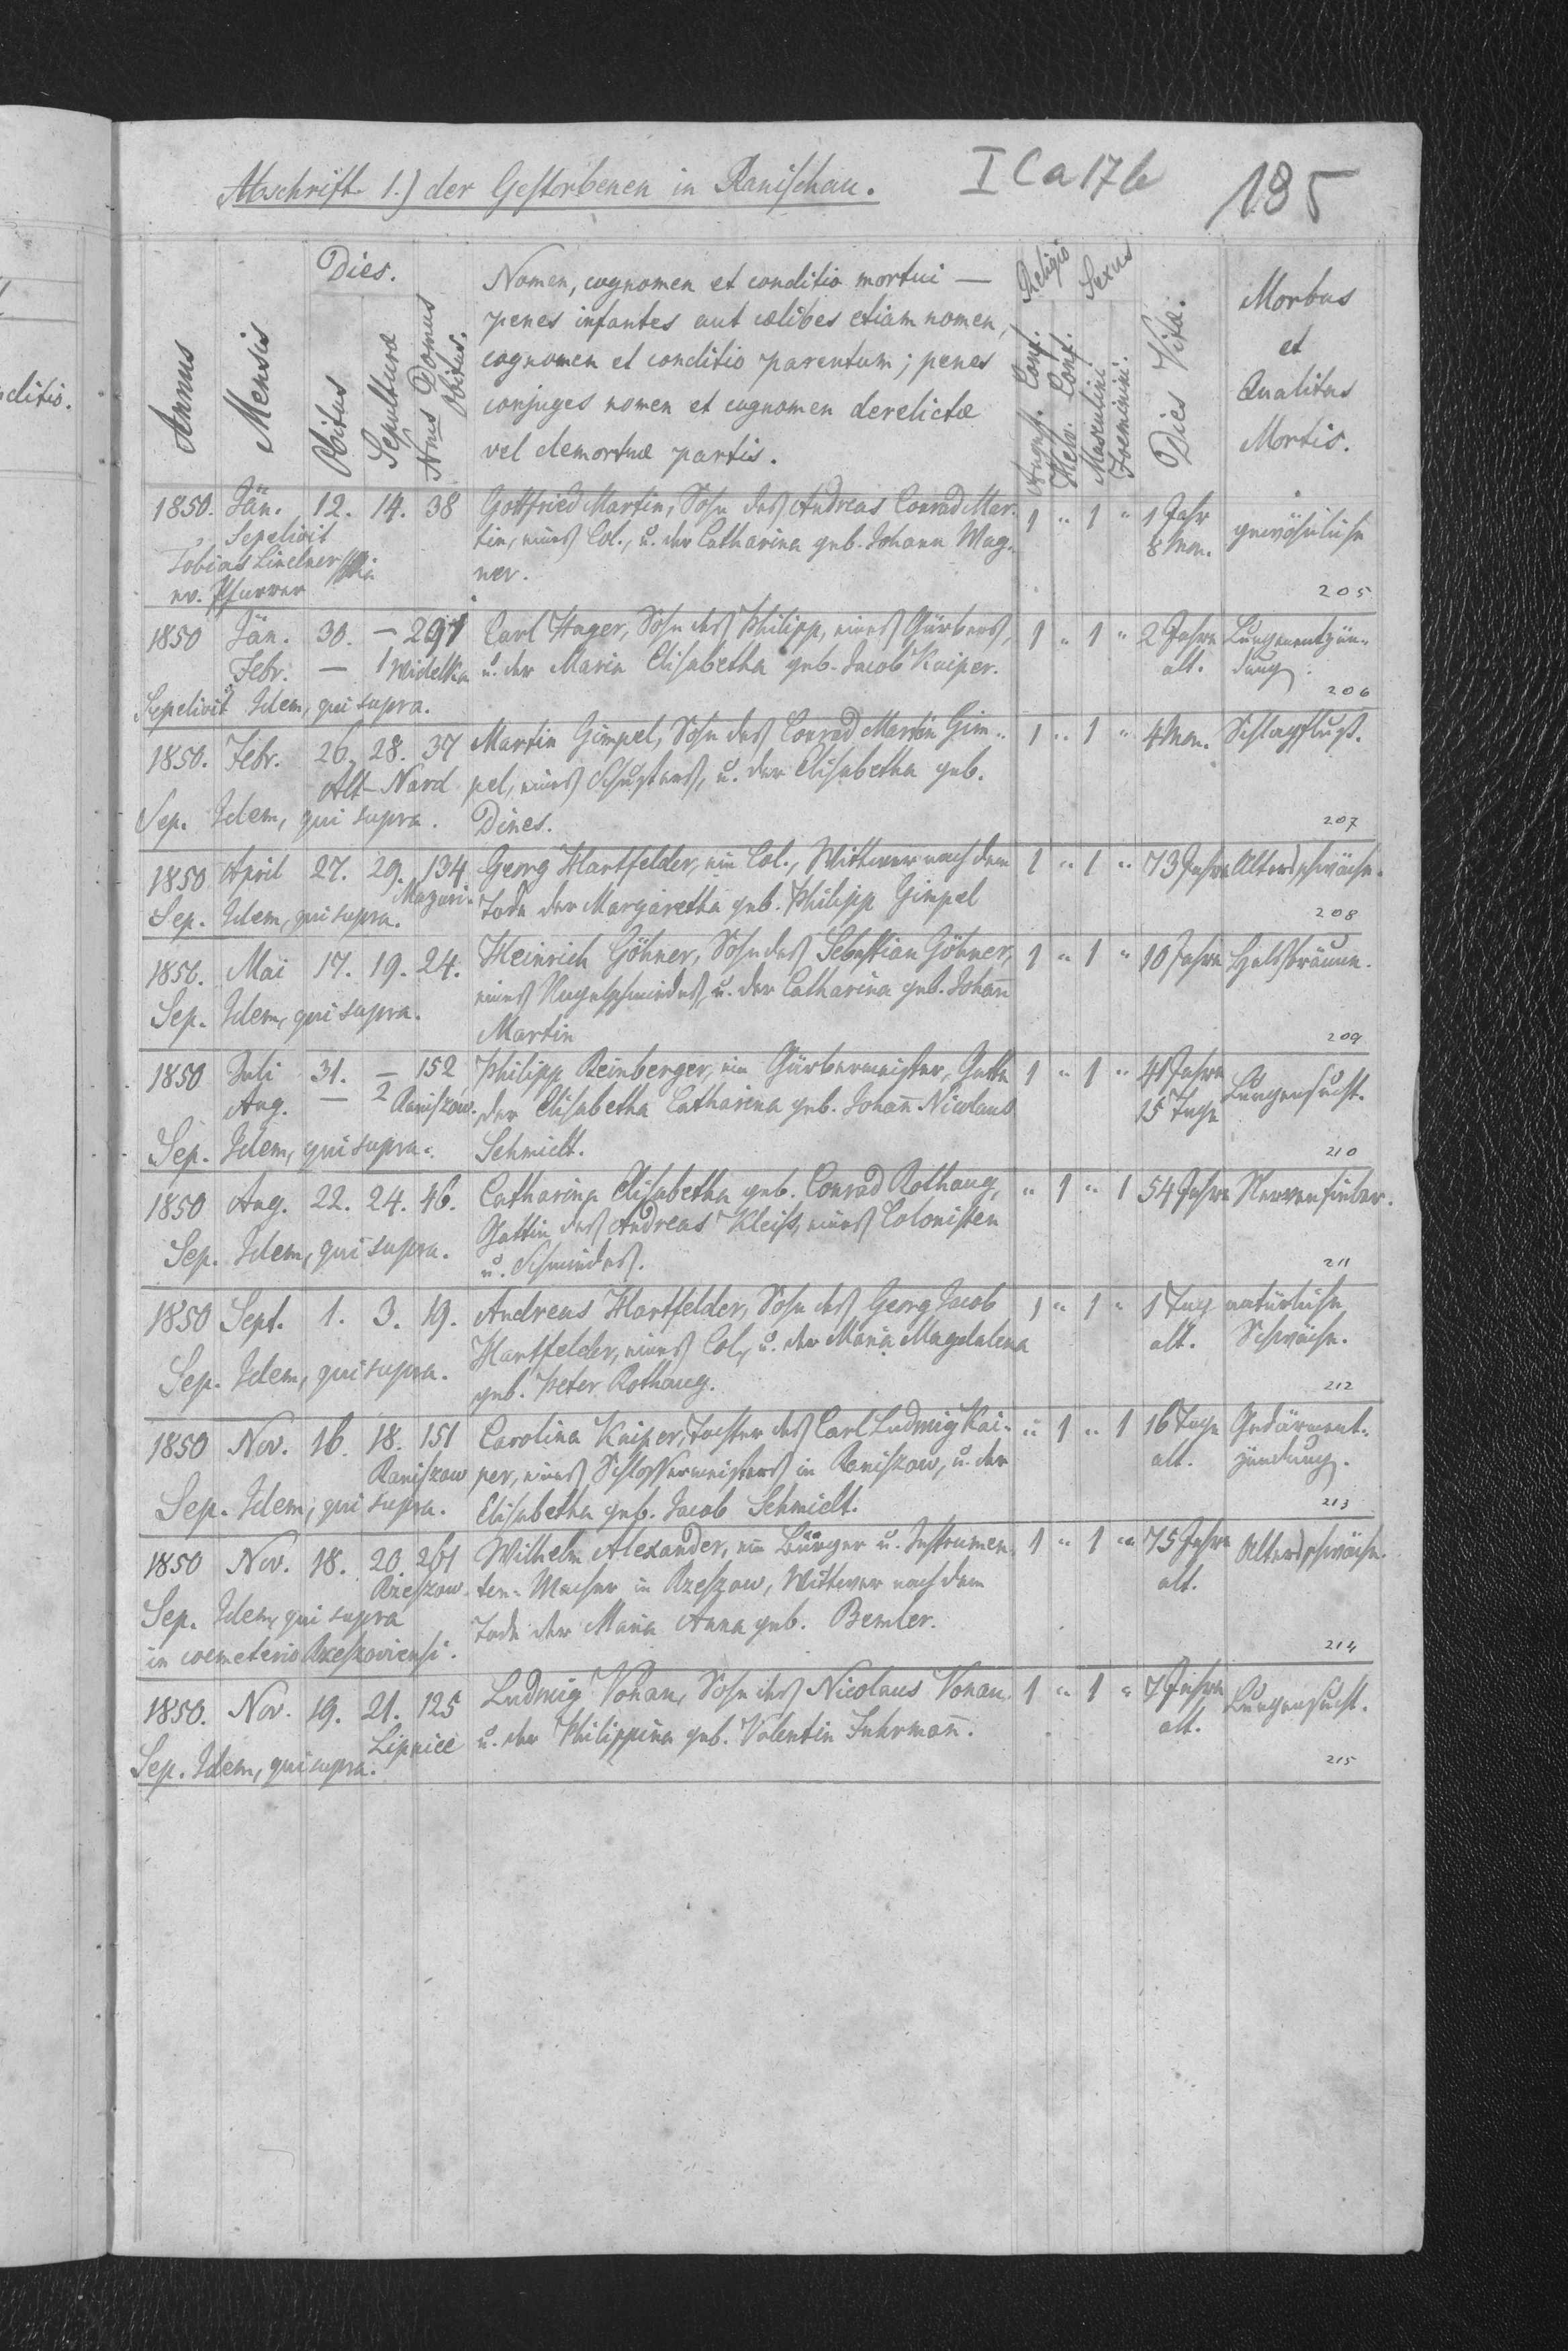 Abschrift 1.) der Gestorbenen in Ranischau.
I C a 17 b
185
ditio.
Annus
Mensis
Dies.
Obitus
Sepulturæ
Nrus Domus Obitus.
Nomen, cognomen et conditio mortui —
penes infantes aut cælibes etiam nomen,
cognomen et conditio parentum; penes
conjuges nomen et cognomen derelictæ
vel demortuæ partis.
Religio
August. Conf.
Helv. Conf.
Sexus
Masculini
Foeminini.
Dies Vitæ.
Morbus
et
Qualitas
Mortis.
1850. Jän. 12. 14. 38 Gottfried Martin, Sohn des Andreas Conrad Mar- 1 " 1 " 1 Jahr gewöhnliche
Sepelivit tin, eines Col., u. der Catharina geb. Johann Wag- 8 Mon.
Tobias Lindner ner.
ev. Pfarrer 205
1850 Jän. 30. — 291 Carl Hager, Sohn des Philipp, eines Gärbers, 1 " 1 " 2 Jahre Lungenentzün-
Febr. — 1 Widelka u. der Maria Elisabetha geb. Jacob Kaiper. alt. dung.
Sepelivit Idem, qui supra. 206
1850. Febr. 26. 28. 37 Martin Gimpel, Sohn des Conrad Martin Gim- 1 " 1 " 4 Mon. Schlagfluß.
Alt-Nard pel, eines Schusters, u. der Elisabetha geb.
Sep. Idem, qui supra. Dines. 207
1850 April 27. 29. 134 Georg Hartfelder, ein Col., Wittwer nach dem 1 " 1 " 73 Jahre Altersschwäche.
Sep. Idem, qui supra. Mazuri. Tode der Margaretha geb. Philipp Gimpel 208
1850. Mai 17. 19. 24. Heinrich Göhner, Sohn des Sebastian Göhner, 1 " 1 " 10 Jahre Halsbräune.
Sep. Idem, qui supra. eines Nagelschmiedes, u. der Catharina geb. Johañ
Martin 209
1850 Juli 31. — 152 Philipp Reinberger, ein Gärbermeister, Gatte 1 " 1 " 41 Jahre Lungensucht.
Aug. — 2 Raniszow. der Elisabetha Catharina geb. Johañ Nicolaus 15 Tage
Sep. Idem, qui supra. Schmidt. 210
1850 Aug. 22. 24. 46. Catharina Elisabetha geb. Conrad Rothaug, " 1 " 1 54 Jahre Nervenfieber.
Sep. Idem, qui supra. Gattin des Andreas Kleiß, eines Colonisten
u. Schmiedes. 211
1850 Sept. 1. 3. 19. Andreas Hartfelder, Sohn des Georg Jacob 1 " 1 " 1 Tag natürliche
Sep. Idem, qui supra. Hartfelder, eines Col., u. der Maria Magdalena alt. Schwäche.
geb. Peter Rothaug. 212
1850 Nov. 16. 18. 151 Carolina Kaiper, Tochter des Carl Ludwig Kai- " 1 " 1 16 Tage Gedärment-
Raniszow per, eines Schlossermeisters in Raniszow, u. der alt. zündung.
Sep. Idem, qui supra. Elisabetha geb. Jacob Schmidt. 213
1850 Nov. 18. 20. 261 Wilhelm Alexander, ein Bürger u. Instrumen- 1 " 1 " 75 Jahre Altersschwäche.
Rzeszow. ten-Macher in Rzeszow, Wittwer nach dem alt.
Sep. Idem, qui supra Tode der Maria Anna geb. Bemler.
in coemeterio Rzeszoviensi. 214
1850. Nov. 19. 21. 125 Ludwig Vonau, Sohn des Nicolaus Vonau, 1 " 1 " 7 Jahre Lungensucht.
Lipnice u. der Philippina geb. Valentin Fuhrmañ. alt.
Sep. Idem, qui supra. 215